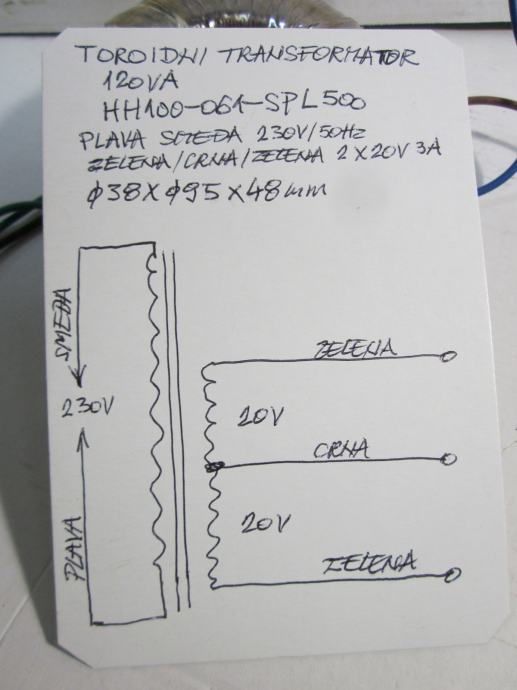 TOROIDNI TRANSFORMATOR
120VA
HH100-061-SPL500
PLAVA SMEĐA 230V/50Hz
ZELENA/CRNA/ZELENA 2X20V 3A
ϕ38Xϕ95X48mm
SMEĐA
230V
PLAVA
ZELENA
20V
CRNA
20V
ZELENA